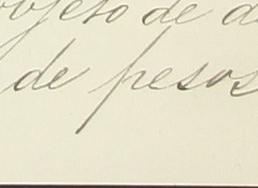 objeto de de
de pesos